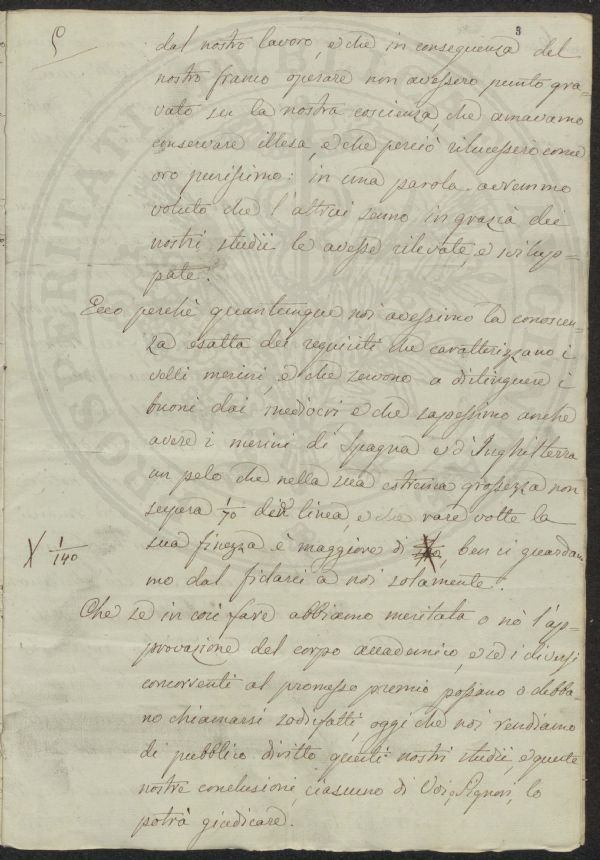 5
3
dal nostro lavoro, e che in conseguenza del
nostro franco operare non avessero punto gra-
vato su la nostra coscienza, che amavamo
conservare illesa, e che perciò rilucessero come
oro purissimo: in una parola avremmo
voluto che l'altrui senno in grazia dei
nostri studii le avesse rilevate, e svilup-
pate.
Ecco perchè quantunque noi avessimo la conoscen-
za esatta dei requisiti che caratterizzano i
velli merini, e che servono a distinguere i
buoni dai mediocri, e che sapessimo anche
avere i merini di Spagna e d'Inghilterra
un pelo che nella sua estrema grossezza non
supera 1/70 di linea, e che rare volte la
sua finezza è maggiore di X, ben ci guardam-
X 1/140
mo dal fidarci a noi solamente.
Che se in così fare abbiamo meritata o nò l'ap-
provazione del corpo accademico, e se i diversi
concorrenti al promesso premio possano o debba-
no chiamarsi soddisfatti, oggi che noi rendiamo
di pubblico diritto questi nostri studii, e queste
nostre conclusioni, ciascuno di Voi, Signori, lo
potrà giudicare.